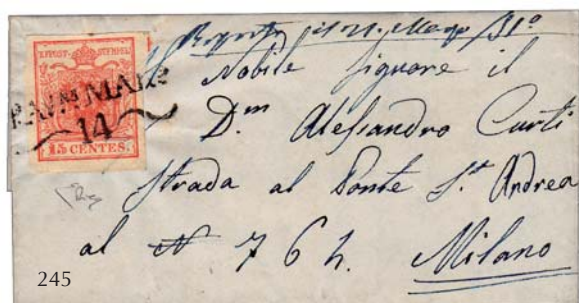 K.K.POST-STEMPEL
15 CENTES.
14
Nobile Signore il
Dm Alessandro Curti
Strada al Ponte St Andrea
al N 764.
Milano
245